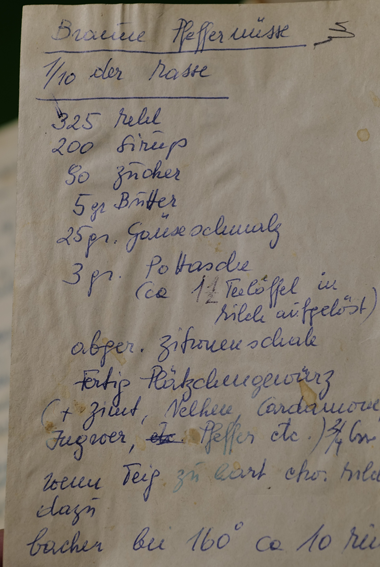 Braune Pfeffernüsse
1/10 der Masse
325 Mehl
200 Sirup
90 Zucker
5 gr Butter
25 gr. Gänseschmalz
3 gr. Pottasche
(ca 1 1/2 Teelöffel in
Milch aufgelöst)
abger. Zitronenschale
Fertig Plätzchengewürz
(+ Zimt, Nelken, Cardamom
Ingwer, etc. Pfeffer etc.)
wenn Teig zu hart, etw. Milch
dazu
backen bei 160° ca 10 Min